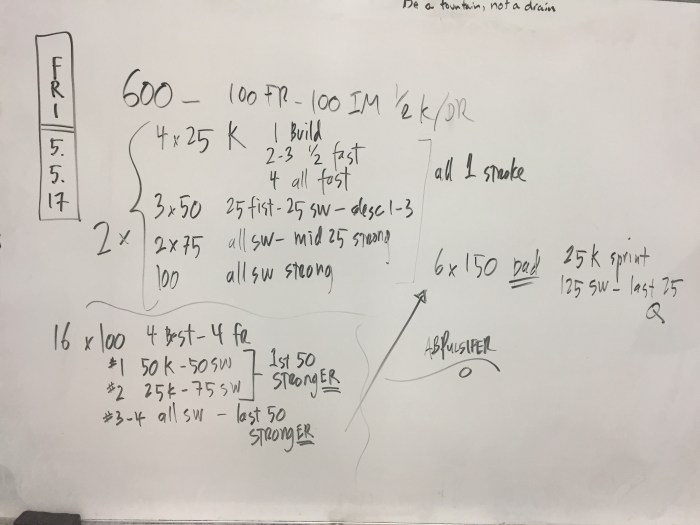 Be a fountain, not a drain
FRI
5.
5.
17
600 - 100 FR - 100 IM 1/2 K/DR
2 x
4 x 25 K 1 Build
2-3 1/2 fast
4 all fast
3 x 50 25 fist - 25 sw - desc 1-3
2 x 75 all sw - mid 25 strong
100 all sw strong
all 1 stroke
16 x 100 4 Best - 4 FR
#1 50 K - 50 SW
#2 25 K - 75 SW
1st 50
STRONGER
#3-4 all sw - last 50
STRONGER
6 x 150 Dad 25 K sprint
125 sw - last 25
Q
ABPULSIFER